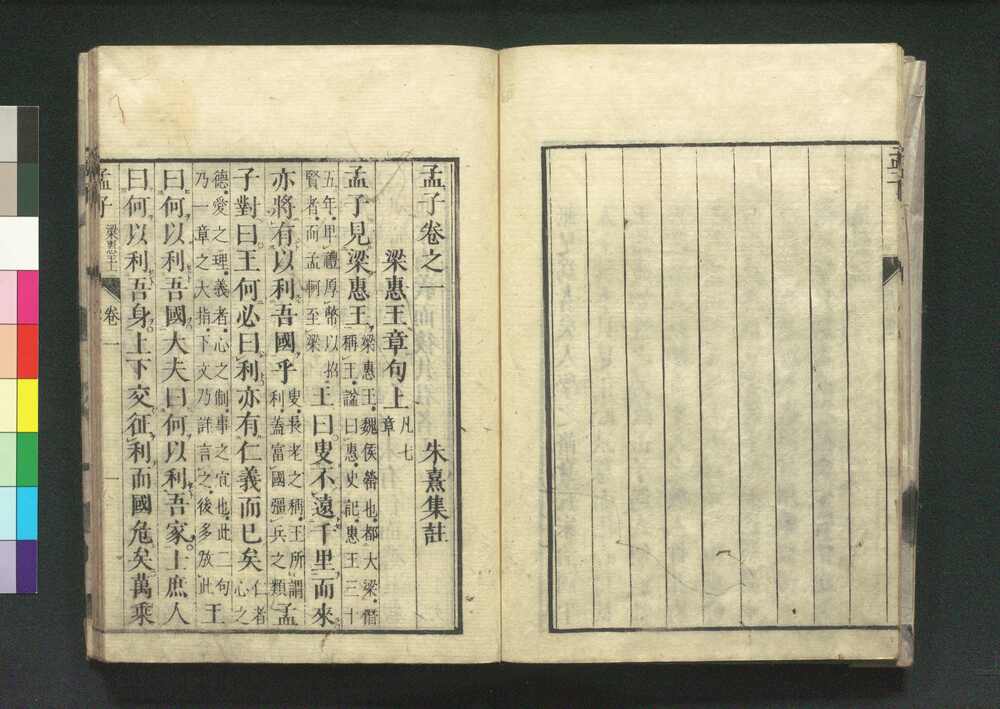 孟子卷之一 朱熹集註
梁惠王章句上 凡七章
孟子見梁惠王 梁惠王魏侯罃也都大梁僭稱王諡曰惠史記惠王三十
五年卑禮厚幣以招賢者而孟軻至梁 王曰叟不遠千里而來
亦將有以利吾國乎 叟長老之稱王所謂利蓋富國彊兵之類 孟
子對曰王何必曰利亦有仁義而已矣 仁者心之
德愛之理義者心之制事之宜也此二句乃一章之大指下文乃詳言之後多放此 王
曰何以利吾國大夫曰何以利吾家士庶人
曰何以利吾身上下交征利而國危矣萬乘
孟子 梁惠王 卷一 一